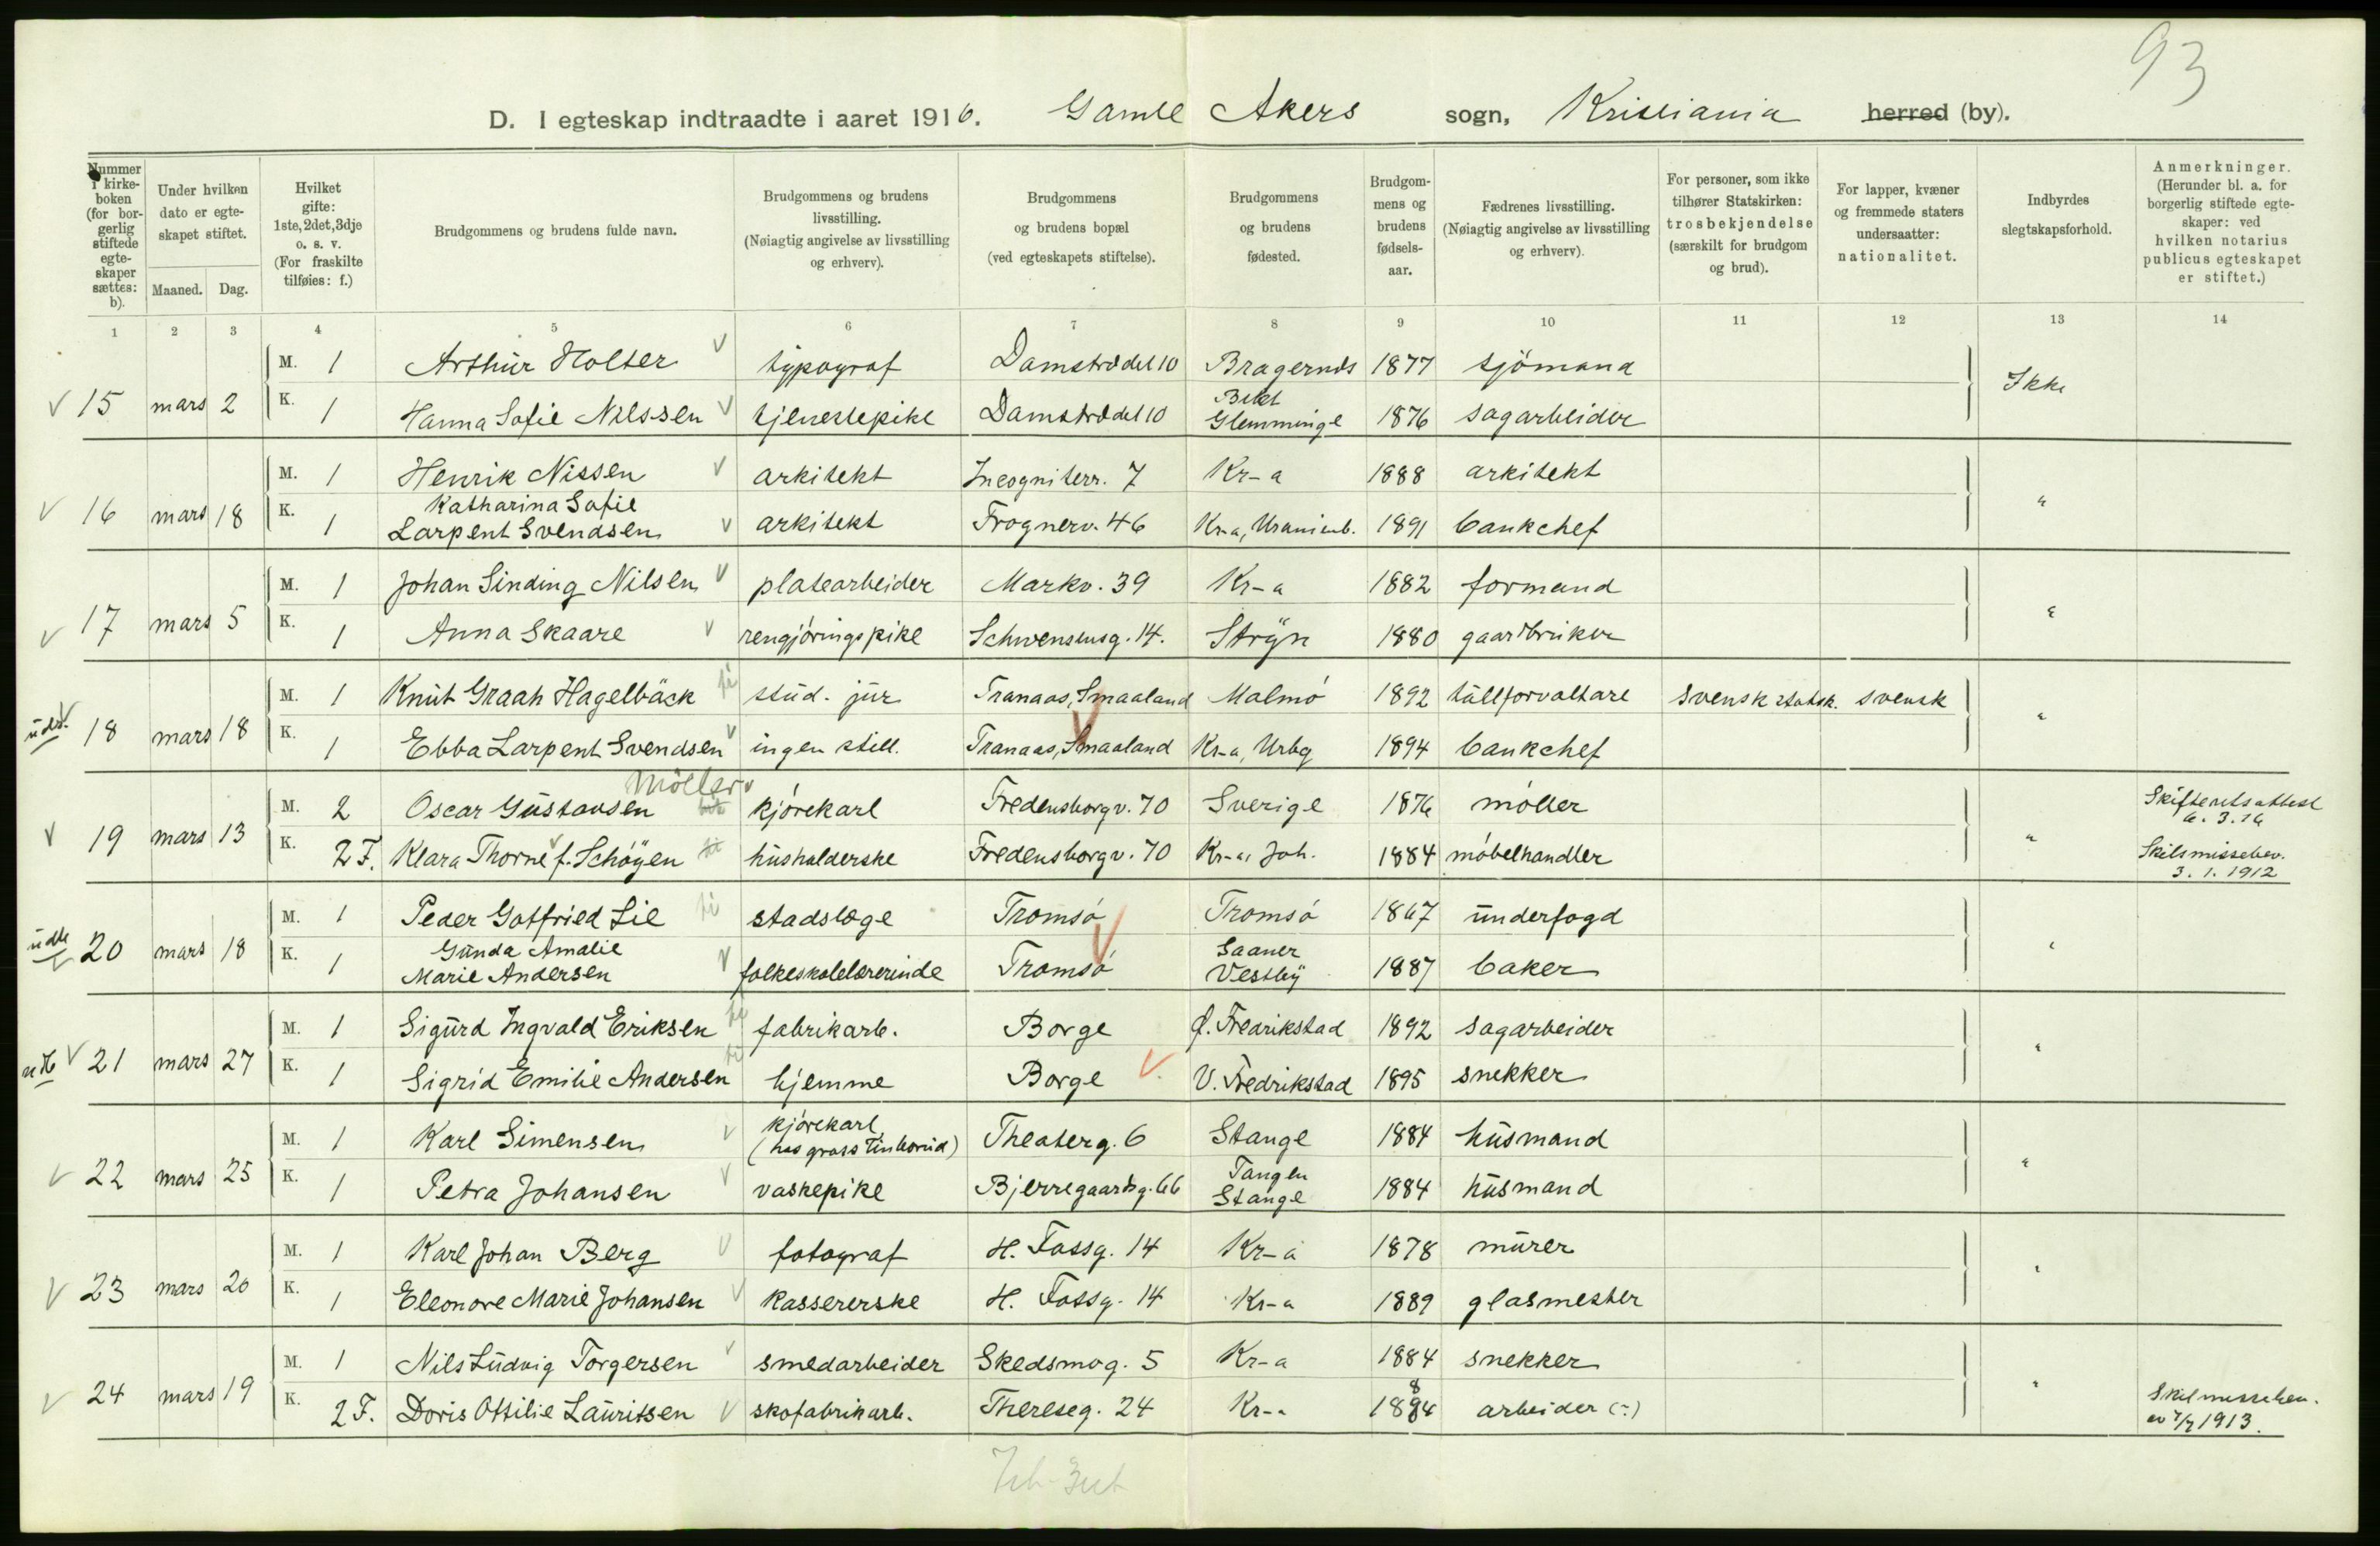 93
D. I egteskap indtraadte i aaret 1916. Gamle Akers sogn, Kristiania herred (by).
Nummer i kirke-boken (for bor-gerlig stiftede egte-skaper sættes: b).
Under hvilken dato er egte-skapet stiftet.
Maaned. Dag.
Hvilket gifte: 1ste, 2det, 3dje o. s. v. (For fraskilte tilføies: f.)
Brudgommens og brudens fulde navn.
Brudgommens og brudens livsstilling. (Nøiagtig angivelse av livsstilling og erhverv).
Brudgommens og brudens bopæl (ved egteskapets stiftelse).
Brudgommens og brudens fødested.
Brudgom-mens og brudens fødsels-aar.
Fædrenes livsstilling. (Nøiagtig angivelse av livsstilling og erhverv).
For personer, som ikke tilhører Statskirken: trosbekjendelse (særskilt for brudgom og brud).
For lapper, kvæner og fremmede staters undersaatter: nationalitet.
Indbyrdes slegtskapsforhold.
Anmerkninger. (Herunder bl. a. for borgerlig stiftede egte-skaper: ved hvilken notarius publicus egteskapet er stiftet.)
1 2 3 4 5 6 7 8 9 10 11 12 13 14
M. 1 Arthur Holter typograf Damstrædet 10 Bragernæs 1877 sjömand
15 mars 2 Ikke
K. 1 Hanna Sofie Nilssen tjenestepike Damstrædet 10 Glemminge 1876 sagarbeider
M. 1 Henrik Nissen arkitekt Incogniterr. 7 Kr-a 1888 arkitekt
16 mars 18 "
K. 1 Katharina Sofie
Larpent Svendsen arkitekt Frognerv. 46 Kr-a, Uranienb. 1891 bankchef
M. 1 Johan Sinding Nilsen platearbeider Markv. 39 Kr-a 1882 formand
17 mars 5 "
K. 1 Anna Skaare rengjöringspike Schwensensg. 14. Stryn 1880 gaardbruker
M. 1 Knut Graah Hagelbäck stud. jur Tranaas, Smaaland Malmö 1892 tullforvaltare svensk statsk. svensk
18 mars 18 "
K. 1 Ebba Larpent Svendsen ingen still. Tranaas, Smaaland Kr-a, Urbg 1894 bankchef
Möller
M. 2 Oscar Gustavsen kjörekarl Fredensborgv. 70 Sverige 1876 möller Skifteretsattest
6. 3. 16
19 mars 13 "
K. 2 F. Klara Thorne f. Schöyen husholderske Fredensborgv. 70 Kr-a, Joh. 1884 möbelhandler Skilsmissebev.
3. 1. 1912
M. 1 Peder Gotfried Lie stadslæge Tromsö Tromsö 1867 underfogd
20 mars 18 "
K. 1 Gunda Amalie
Marie Andersen folkeskolelærerinde Tromsö Saaner
Vestby 1887 baker
M. 1 Sigurd Ingvald Eriksen fabrikarb. Borge Ø. Fredrikstad 1892 sagarbeider
21 mars 27 "
K. 1 Sigrid Emilie Andersen hjemme Borge V. Fredrikstad 1895 snekker
M. 1 Karl Simensen kjörekarl
Theaterg. 6 Stange 1884 husmand
22 mars 25 "
K. 1 Petra Johansen vaskepike Bjerregaardsg. 66 Tangen
Stange 1884 husmand
M. 1 Karl Johan Berg fotograf H. Fossg. 14 Kr-a 1878 murer
23 mars 20 "
K. 1 Eleonore Marie Johansen kassererske H. Fossg. 14 Kr-a 1889 glasmester
M. 1 Nils Ludvig Torgersen smedarbeider Skedsmog. 5 Kr-a 1884 snekker
24 mars 19 "
K. 2 F. Doris Ottilie Lauritsen skofabrikarb. Thereseg. 24 Kr-a 1884 arbeider (?) Skilsmissebev.
1913.